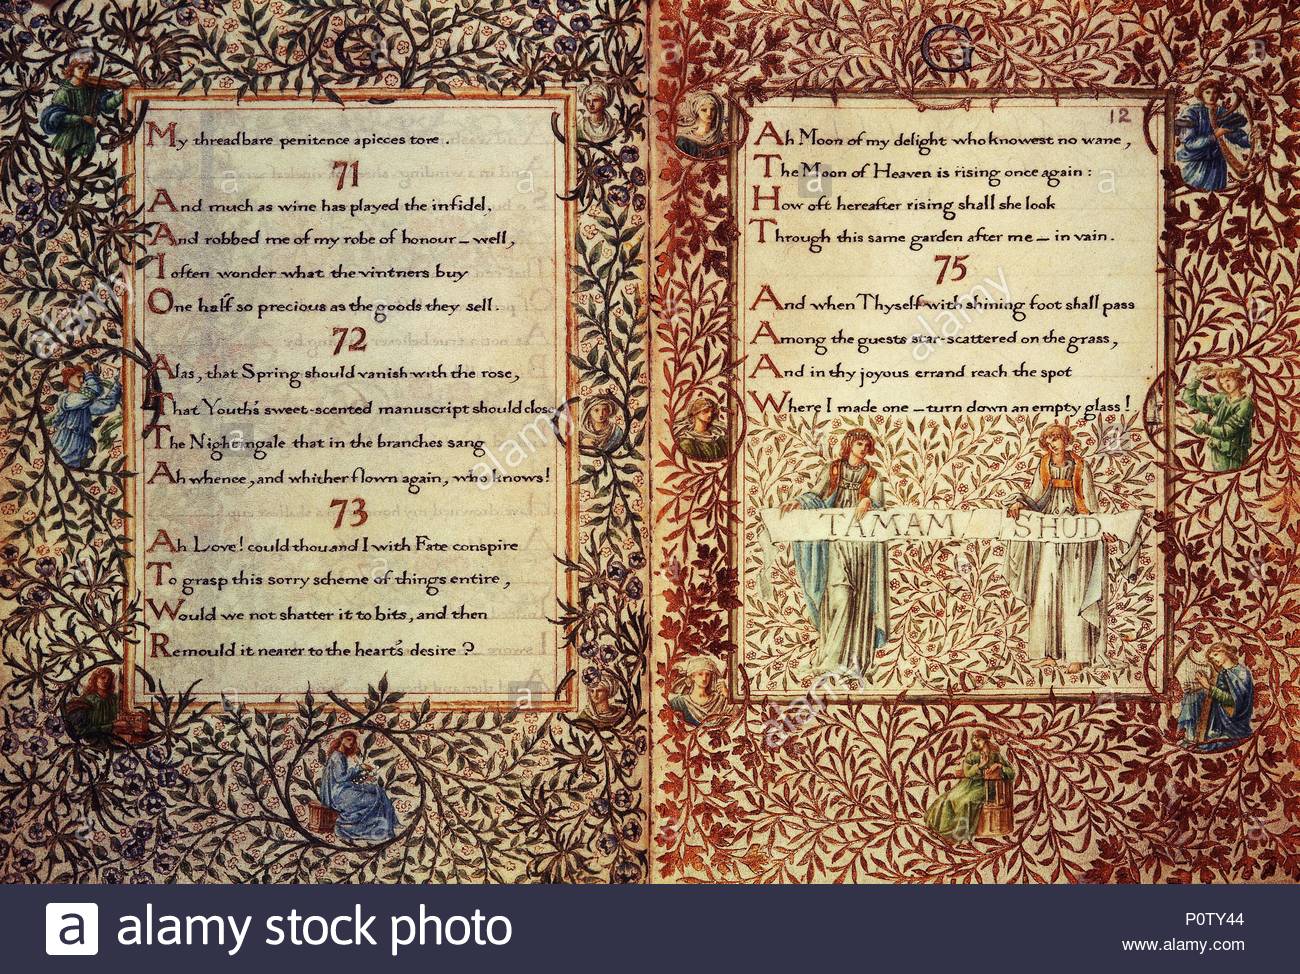 My threadbare penitence apieces tore.
71
And much as wine has played the infidel,
And robbed me of my robe of honour – well,
I often wonder what the vintners buy
One half so precious as the goods they sell.
72
Alas, that Spring should vanish with the rose,
That Youth's sweet-scented manuscript should close
The Nightingale that in the branches sang
Ah whence, and whither flown again, who knows!
73
Ah Love! could thou and I with Fate conspire
To grasp this sorry scheme of things entire,
Would we not shatter it to bits, and then
Remould it nearer to the heart's desire?
G
12
Ah Moon of my delight who knowest no wane,
The Moon of Heaven is rising once again:
How oft hereafter rising shall she look
Through this same garden after me – in vain.
75
And when Thyself with shining foot shall pass
Among the guests star-scattered on the grass,
And in thy joyous errand reach the spot
Where I made one – turn down an empty glass!
TAMAM SHUD
alamy
alamy
alamy
alamy
a alamy stock photo
P0TY44
www.alamy.com